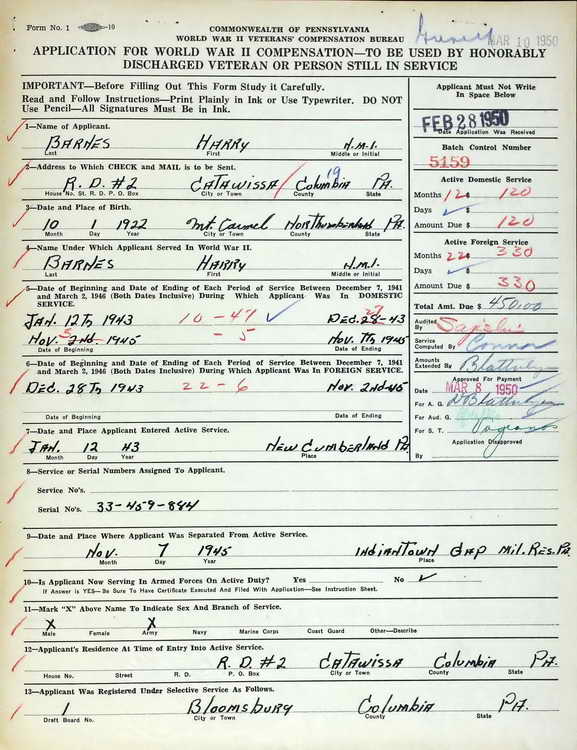 Form No. 1
COMMONWEALTH OF PENNSYLVANIA
WORLD WAR II VETERANS' COMPENSATION BUREAU
MAR 10 1950
APPLICATION FOR WORLD WAR II COMPENSATION—TO BE USED BY HONORABLY
DISCHARGED VETERAN OR PERSON STILL IN SERVICE
IMPORTANT—Before Filling Out This Form Study it Carefully.
Read and Follow Instructions—Print Plainly in Ink or Use Typewriter. DO NOT
Use Pencil—All Signatures Must Be in Ink.
Applicant Must Not Write
In Space Below
FEB 28 1950
Date Application Was Received
Batch Control Number
5159
Active Domestic Service
Months 12 $ 120
Days $
Amount Due $ 120
Active Foreign Service
Months 22 $ 330
Days $
Amount Due $ 330
Total Amt. Due $ 450.00
Audited By
Service Computed By Connor
Amounts Extended By
Approved For Payment
Date MAR 8 1950
For A. G.
For Aud. G.
For S. T.
Application Disapproved
By
1—Name of Applicant.
BARNES HARRY N.M.I.
Last First Middle or Initial
2—Address to Which CHECK and MAIL is to be Sent.
19
R. D. #2 CATAWISSA Columbia PA.
House No. St. R. D. P. O. Box City or Town County State
3—Date and Place of Birth.
10 1 1922 Mt. Carmel Northumberland PA.
Month Day Year City or Town County State
4—Name Under Which Applicant Served In World War II.
BARNES HARRY N.M.I.
Last First Middle or Initial
5—Date of Beginning and Date of Ending of Each Period of Service Between December 7, 1941
and March 2, 1946 (Both Dates Inclusive) During Which Applicant Was In DOMESTIC
SERVICE.
27
JAN. 12Th 1943 10-47 DEC. 28-43
3
Nov. 2nd 1945 - 5 Nov. 7th 1945
Date of Beginning Date of Ending
6—Date of Beginning and Date of Ending of Each Period of Service Between December 7, 1941
and March 2, 1946 (Both Dates Inclusive) During Which Applicant Was In FOREIGN SERVICE.
DEC. 28Th 1943 22-6 Nov. 2nd-45
Date of Beginning Date of Ending
7—Date and Place Applicant Entered Active Service.
JAN. 12 43 NEW CUMBERLAND PA
Month Day Year Place
8—Service or Serial Numbers Assigned To Applicant.
Service No's.
Serial No's. 33-459-844
9—Date and Place Where Applicant Was Separated From Active Service.
Nov. 7 1945 INDIANTOWN GAP Mil. Res. PA.
Month Day Year Place
10—Is Applicant Now Serving In Armed Forces On Active Duty? Yes No ✓
If Answer is YES—Be Sure To Have Certificate Executed And Filed With Application—See Instruction Sheet.
11—Mark "X" Above Name To Indicate Sex And Branch of Service.
X X
Male Female Army Navy Marine Corps Coast Guard Other—Describe
12—Applicant's Residence At Time of Entry Into Active Service.
R. D. #2 CATAWISSA Columbia PA.
House No. Street R. D. P. O. Box City or Town County State
13—Applicant Was Registered Under Selective Service As Follows.
1 Bloomsburg Columbia PA.
Draft Board No. City or Town County State